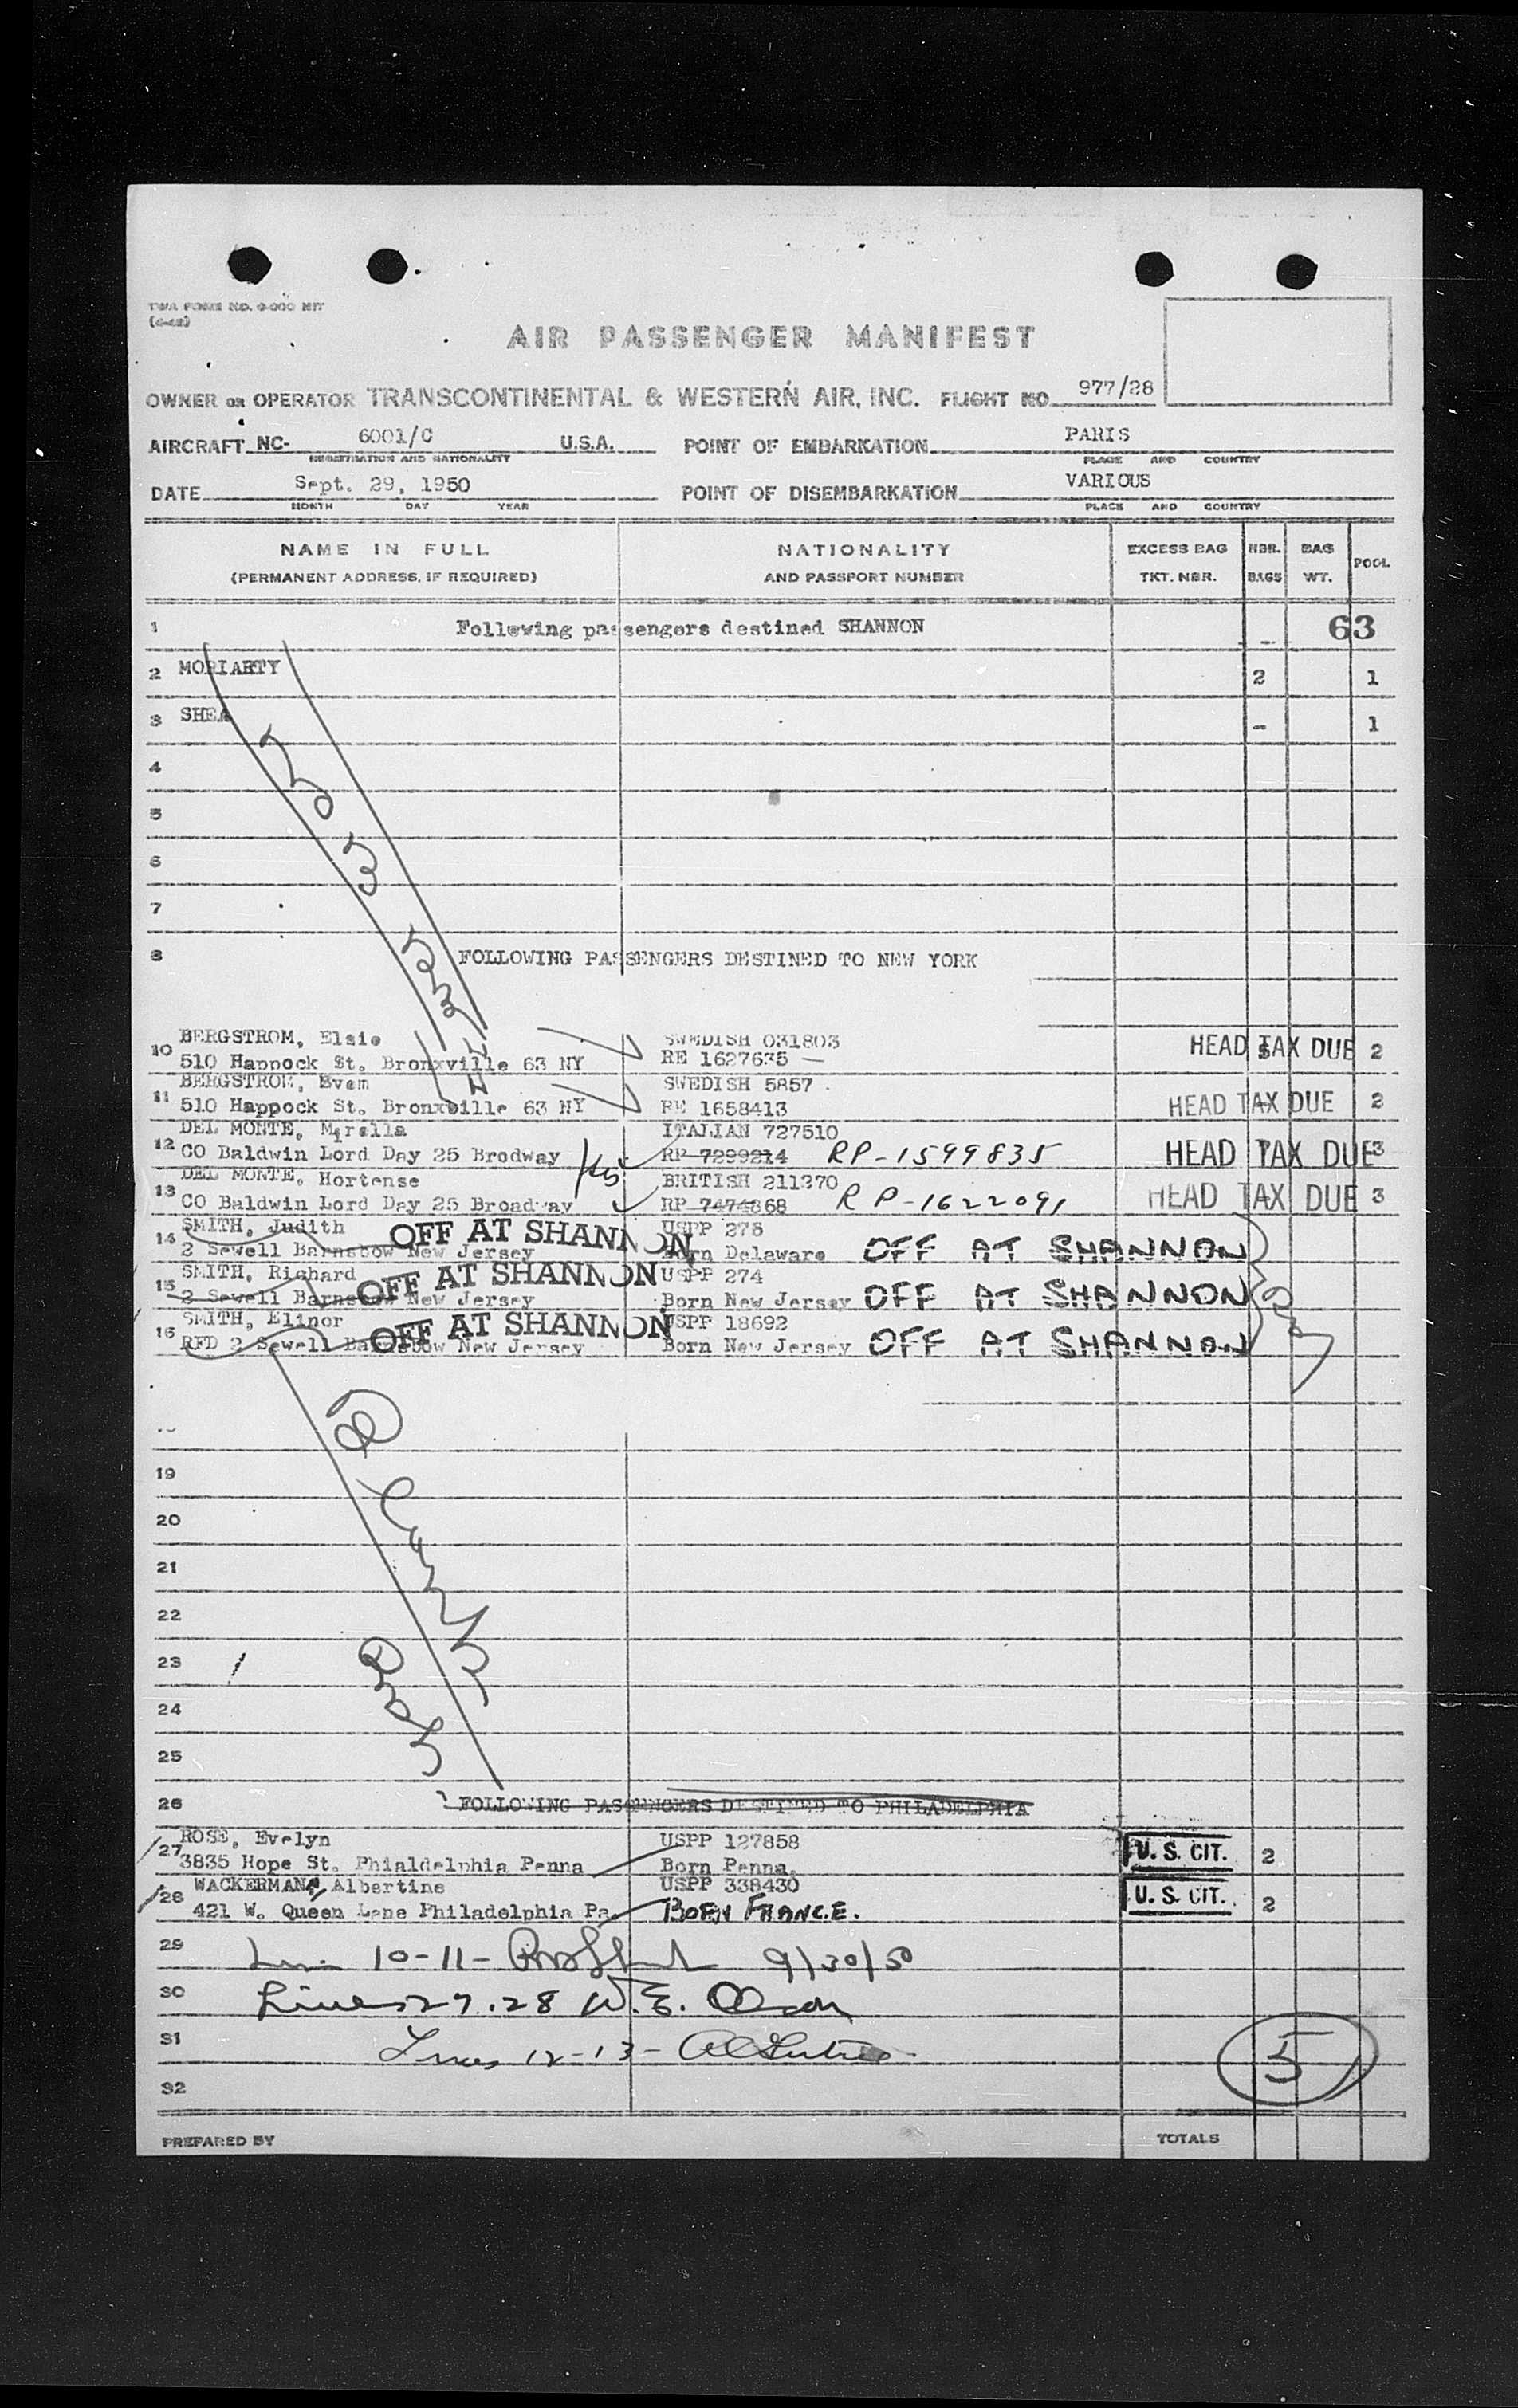 TWA FORM NO. INT
AIR PASSENGER MANIFEST
OWNER OR OPERATOR TRANSCONTINENTAL & WESTERN AIR, INC. FLIGHT NO. 977/28
AIRCRAFT NC- 6001/C U.S.A. POINT OF EMBARKATION PARIS
REGISTRATION AND NATIONALITY PLACE AND COUNTRY
DATE Sept. 29, 1950 POINT OF DISEMBARKATION VARIOUS
MONTH DAY YEAR PLACE AND COUNTRY
NAME IN FULL NATIONALITY EXCESS BAG NBR. BAG POOL
(PERMANENT ADDRESS, IF REQUIRED) AND PASSPORT NUMBER TKT. NBR. BAGS WT.
1 Following passengers destined SHANNON - 63
2 MORIARTY 2 1
3 SHEA - 1
4
5
6
7
8 FOLLOWING PASSENGERS DESTINED TO NEW YORK
BERGSTROM, Elsie SWEDISH 031803
10 510 Happock St. Bronxville 63 NY RE 1627635 — HEAD TAX DUE 2
BERGSTROM, Evem SWEDISH 5857
11 510 Happock St. Bronxville 63 NY RE 1658413 HEAD TAX DUE 2
DEL MONTE, Mirella ITALIAN 727510
12 CO Baldwin Lord Day 25 Brodway RP 7299214 RP-1599835 HEAD TAX DUE 3
DEL MONTE, Hortense BRITISH 211370
13 CO Baldwin Lord Day 25 Broadway RP 7474868 RP-1622091 HEAD TAX DUE 3
SMITH, Judith OFF AT SHANNON USPP 278
14 2 Sewell Barnsbow New Jersey Born Delaware OFF AT SHANNON
SMITH, Richard OFF AT SHANNON USPP 274
15 2 Sewell Barnsbow New Jersey Born New Jersey OFF AT SHANNON
SMITH, Elinor OFF AT SHANNON USPP 18692
16 RFD 2 Sewell Barnsbow New Jersey Born New Jersey OFF AT SHANNON
19
20
21
22
23
24
25
26 FOLLOWING PASSENGERS DESTINED TO PHILADELPHIA
ROSE, Evelyn USPP 127858
27 3835 Hope St. Phialdelphia Penna Born Penna. U. S. CIT. 2
WACKERMANN, Albertine USPP 338430
28 421 W. Queen Lane Philadelphia Pa. BORN FRANCE. U. S. CIT. 2
29 10-11- 9/30/50
30 Lines 27.28 W.E. Olson
31 Lines 12-13-
5
32
PREPARED BY TOTALS